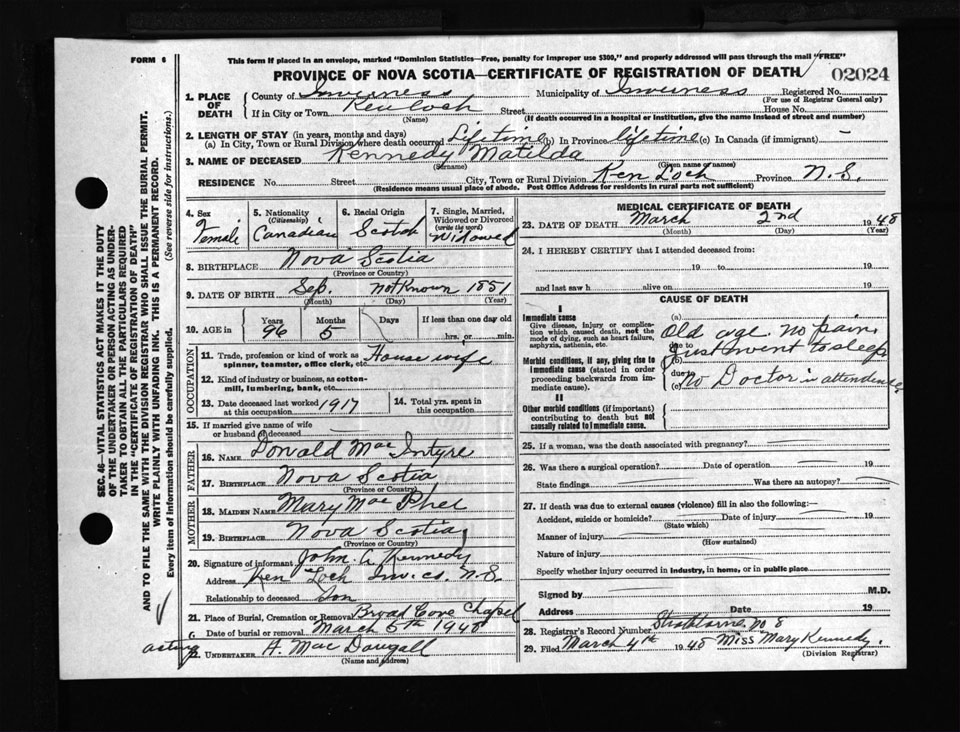 FORM 6
This form if placed in an envelope, marked "Dominion Statistics—Free, penalty for improper use $300," and properly addressed will pass through the mail "FREE"
PROVINCE OF NOVA SCOTIA—CERTIFICATE OF REGISTRATION OF DEATH
02024
1. PLACE OF DEATH
County of Inverness Municipality of Inverness Registered No.
(For use of Registrar General only)
If in City or Town Ken Loch Street House No.
(Name) (If death occurred in a hospital or institution, give the name instead of street and number)
2. LENGTH OF STAY (in years, months and days)
(a) In City, Town or Rural Division where death occurred Lifetime (b) In Province lifetime (c) In Canada (if immigrant) —
3. NAME OF DECEASED Kennedy Matilda
(Surname) (Given name or names)
RESIDENCE No. Street City, Town or Rural Division Ken Loch Province N.S.
(Residence means usual place of abode. Post Office Address for residents in rural parts not sufficient)
4. Sex Female
5. Nationality (Citizenship) Canadian
6. Racial Origin Scotch
7. Single, Married, Widowed or Divorced (write the word) Widowed
8. BIRTHPLACE Nova Scotia
(Province or Country)
9. DATE OF BIRTH Sep. not Known 1851
(Month) (Day) (Year)
10. AGE in Years 96 Months 5 Days If less than one day old hrs. or min.
OCCUPATION
11. Trade, profession or kind of work as spinner, teamster, office clerk, etc. House wife
12. Kind of industry or business, as cotton-mill, lumbering, bank, etc.
13. Date deceased last worked at this occupation 1917
14. Total yrs. spent in this occupation
15. If married give name of wife or husband of deceased
FATHER
16. NAME Donald Mac Intyre
17. BIRTHPLACE Nova Scotia
(Province or Country)
MOTHER
18. MAIDEN NAME Mary Mac Phee
19. BIRTHPLACE Nova Scotia
(Province or Country)
20. Signature of informant John A Kennedy
Address Ken Loch Inv. co. N.S.
Relationship to deceased Son
21. Place of Burial, Cremation or Removal Broad Cove Chapel
Date of burial or removal March 5th 1948
acting
22. UNDERTAKER A. Mac Dougall
(Name and address)
MEDICAL CERTIFICATE OF DEATH
23. DATE OF DEATH March 2nd 1948
(Month) (Day) (Year)
24. I HEREBY CERTIFY that I attended deceased from:
19 to 19
and last saw h alive on 19
CAUSE OF DEATH
I
Immediate cause
Give disease, injury or complication which caused death, not the mode of dying, such as heart failure, asphyxia, asthenia, etc.
Morbid conditions, if any, giving rise to immediate cause (stated in order proceeding backwards from immediate cause).
II
Other morbid conditions (if important) contributing to death but not causally related to immediate cause.
(a) Old age. no pain,
due to
(b) Just went to sleep
due to
(c) No Doctor in attendence
25. If a woman, was the death associated with pregnancy?
26. Was there a surgical operation? Date of operation
State findings Was there an autopsy?
27. If death was due to external causes (violence) fill in also the following:
Accident, suicide or homicide? Date of injury 19
(State which)
Manner of injury
(How sustained)
Nature of injury
Specify whether injury occurred in industry, in home, or in public place
Signed by M.D.
Address Date 19
28. Registrar's Record Number Strathlorne, No 8
29. Filed March 4th 1948 Miss Mary Kennedy.
(Division Registrar)
SEC. 46—VITAL STATISTICS ACT MAKES IT THE DUTY
OF THE UNDERTAKER OR PERSON ACTING AS UNDER-
TAKER TO OBTAIN ALL THE PARTICULARS REQUIRED
IN THE "CERTIFICATE OF REGISTRATION OF DEATH"
AND TO FILE THE SAME WITH THE DIVISION REGISTRAR WHO SHALL ISSUE THE BURIAL PERMIT.
WRITE PLAINLY WITH UNFADING INK. THIS IS A PERMANENT RECORD.
Every item of information should be carefully supplied. (See reverse side for instructions.)